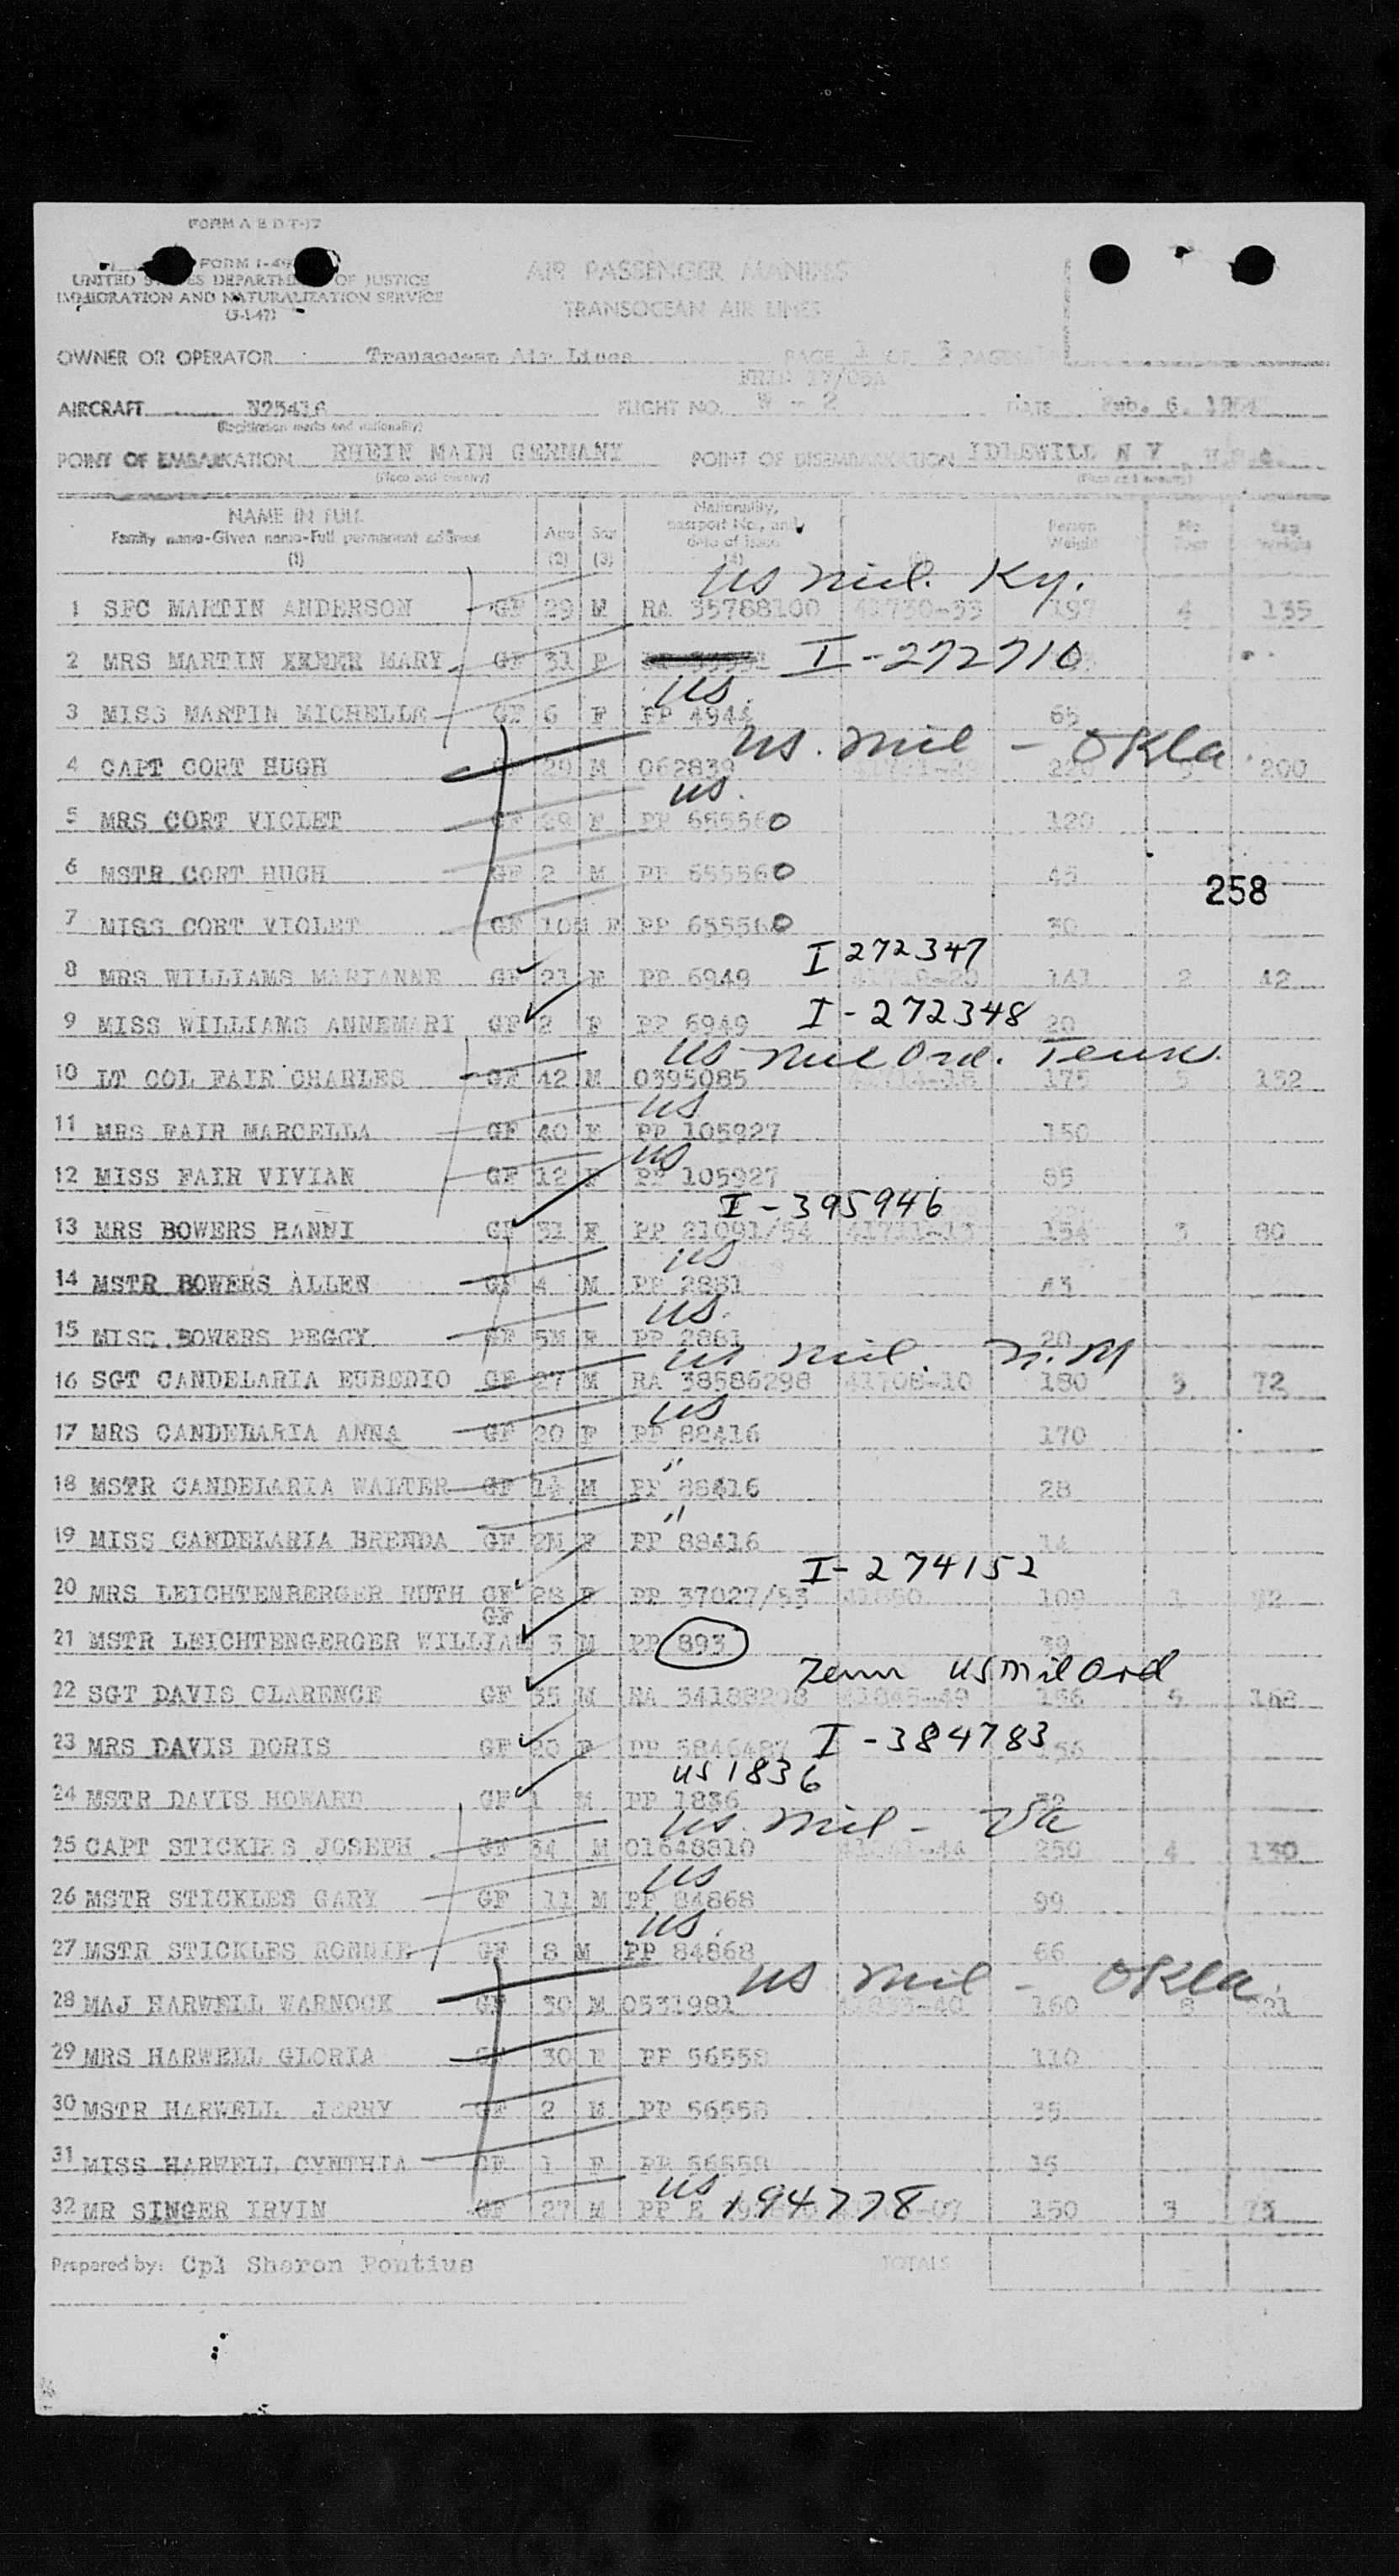 FORM A E D T-17
FORM I-49
UNITED STATES DEPARTMENT OF JUSTICE
IMMIGRATION AND NATURALIZATION SERVICE
(5-1-47)
AIR PASSENGER MANIFEST
TRANSOCEAN AIR LINES
OWNER OR OPERATOR Transocean Air Lines PAGE 1 OF 3 PAGES
AIRCRAFT FLIGHT NO. DATE Feb. 6, 1954
(Registration marks and nationality)
POINT OF EMBARKATION RHEIN MAIN GERMANY POINT OF DISEMBARKATION IDLEWILD N Y U.S.A.
(Place and country) (Place and country)
NAME IN FULL Age Sex Nationality, passport No., and date of issue Person Weight Bag Weight
Family name-Given name-Full permanent address
(1) (2) (3) (4)
US Mil. Ky.
1 SFC MARTIN ANDERSON GF 29 M RA 35788100 41730-33 197 4 135
2 MRS MARTIN MARY GF 31 F I-272710
US.
3 MISS MARTIN MICHELLE GF 6 F PP 4944 65
US. Mil - Okla.
4 CAPT CORT HUGH GF 29 M 062839 200
US.
5 MRS CORT VIOLET GF 28 F PP 655560 120
6 MSTR CORT HUGH GF 2 M PP 655560 45
258
7 MISS CORT VIOLET GF 10M F PP 655560 30
I 272347
8 MRS WILLIAMS MARIANNE GF 21 F PP 6949 141 2 42
9 MISS WILLIAMS ANNEMARI GF 2 F PP 6949 I-272348 20
US Mil Ord. Tenn.
10 LT COL FAIR CHARLES GF 42 M 0395085 175 5 152
US
11 MRS FAIR MARCELLA GF 40 F PP 105927 150
US
12 MISS FAIR VIVIAN GF 12 F PP 105927 85
I-395946
13 MRS BOWERS HANNI GF 31 F PP 21091/54 41711-13 154 3 80
US
14 MSTR BOWERS ALLEN GF 4 M PP 2881 43
US.
15 MISS BOWERS PEGGY GF 5M F PP 2881 20
US Mil. N.M
16 SGT CANDELARIA EUBEDIO GF 27 M RA 38586298 41708-10 180 3 72
US
17 MRS CANDELARIA ANNA GF 20 F PP 88416 170
"
18 MSTR CANDELARIA WALTER GF 1½ M PP 88416 28
"
19 MISS CANDELARIA BRENDA GF 2M F PP 88416 14
I-274152
20 MRS LEICHTENBERGER RUTH GF 28 F PP 37027/53 109 1
GF
21 MSTR LEICHTENGERGER WILLIAM 3 M PP 893 39
Tenn US Mil Ord
22 SGT DAVIS CLARENCE GF 35 M RA 41845-49 156 5 168
23 MRS DAVIS DORIS GF 20 F PP I-384783 156
US 1836
24 MSTR DAVIS HOWARD GF 1 M PP 1836 32
US. Mil - Va
25 CAPT STICKLES JOSEPH GF 34 M 01648810 250 4 130
US
26 MSTR STICKLES GARY GF 11 M PP 84868 99
US.
27 MSTR STICKLES RONNIE GF 8 M PP 84868 66
US Mil - Okla.
28 MAJ HARWELL WARNOCK GF 30 M 0531981 160 8
29 MRS HARWELL GLORIA GF 30 F PP 56558 110
30 MSTR HARWELL JERRY GF 2 M PP 56558 35
31 MISS HARWELL CYNTHIA GF 1 F PP 56558 15
US 194778
32 MR SINGER IRVIN GF 27 M PP 150 3 73
Prepared by: Cpl Sharon Pontius TOTALS